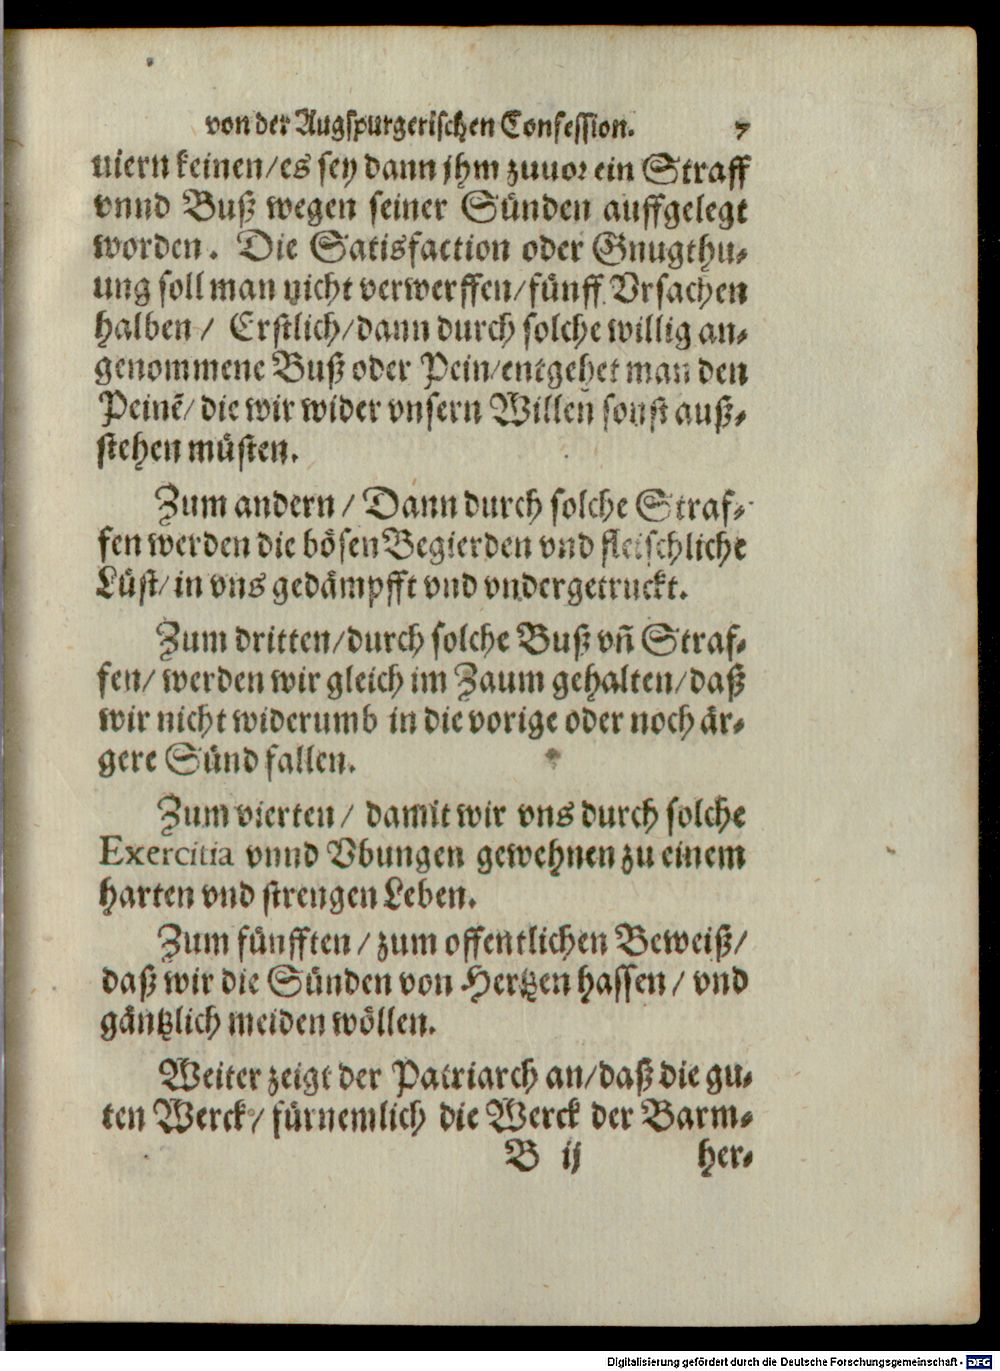 von der Augspurgerischen Confession. 7
uiern keinen/es sey dann jhm zuuor ein Straff
vnnd Buß wegen seiner Sünden auffgelegt
worden. Die Satisfaction oder Gnugthu-
ung soll man nicht verwerffen/fünff Vrsachen
halben/ Erstlich/dann durch solche willig an-
genommene Buß oder Pein/entgehet man den
Peinē/die wir wider vnsern Willen sonst auß-
stehen müsten.
Zum andern/ Dann durch solche Straf-
fen werden die bösen Begierden vnd fleischliche
Lüst/in vns gedämpfft vnd vndergetruckt.
Zum dritten/durch solche Buß vñ Straf-
fen/ werden wir gleich im Zaum gehalten/daß
wir nicht widerumb in die vorige oder noch är-
gere Sünd fallen.
Zum vierten/ damit wir vns durch solche
Exercitia vnnd Vbungen gewehnen zu einem
harten vnd strengen Leben.
Zum fünfften/zum offentlichen Beweiß/
daß wir die Sünden von Hertzen hassen/ vnd
gäntzlich meiden wöllen.
Weiter zeigt der Patriarch an/daß die gu-
ten Werck/ fürnemlich die Werck der Barm-
B ij her-
Digitalisierung gefördert durch die Deutsche Forschungsgemeinschaft - DFG